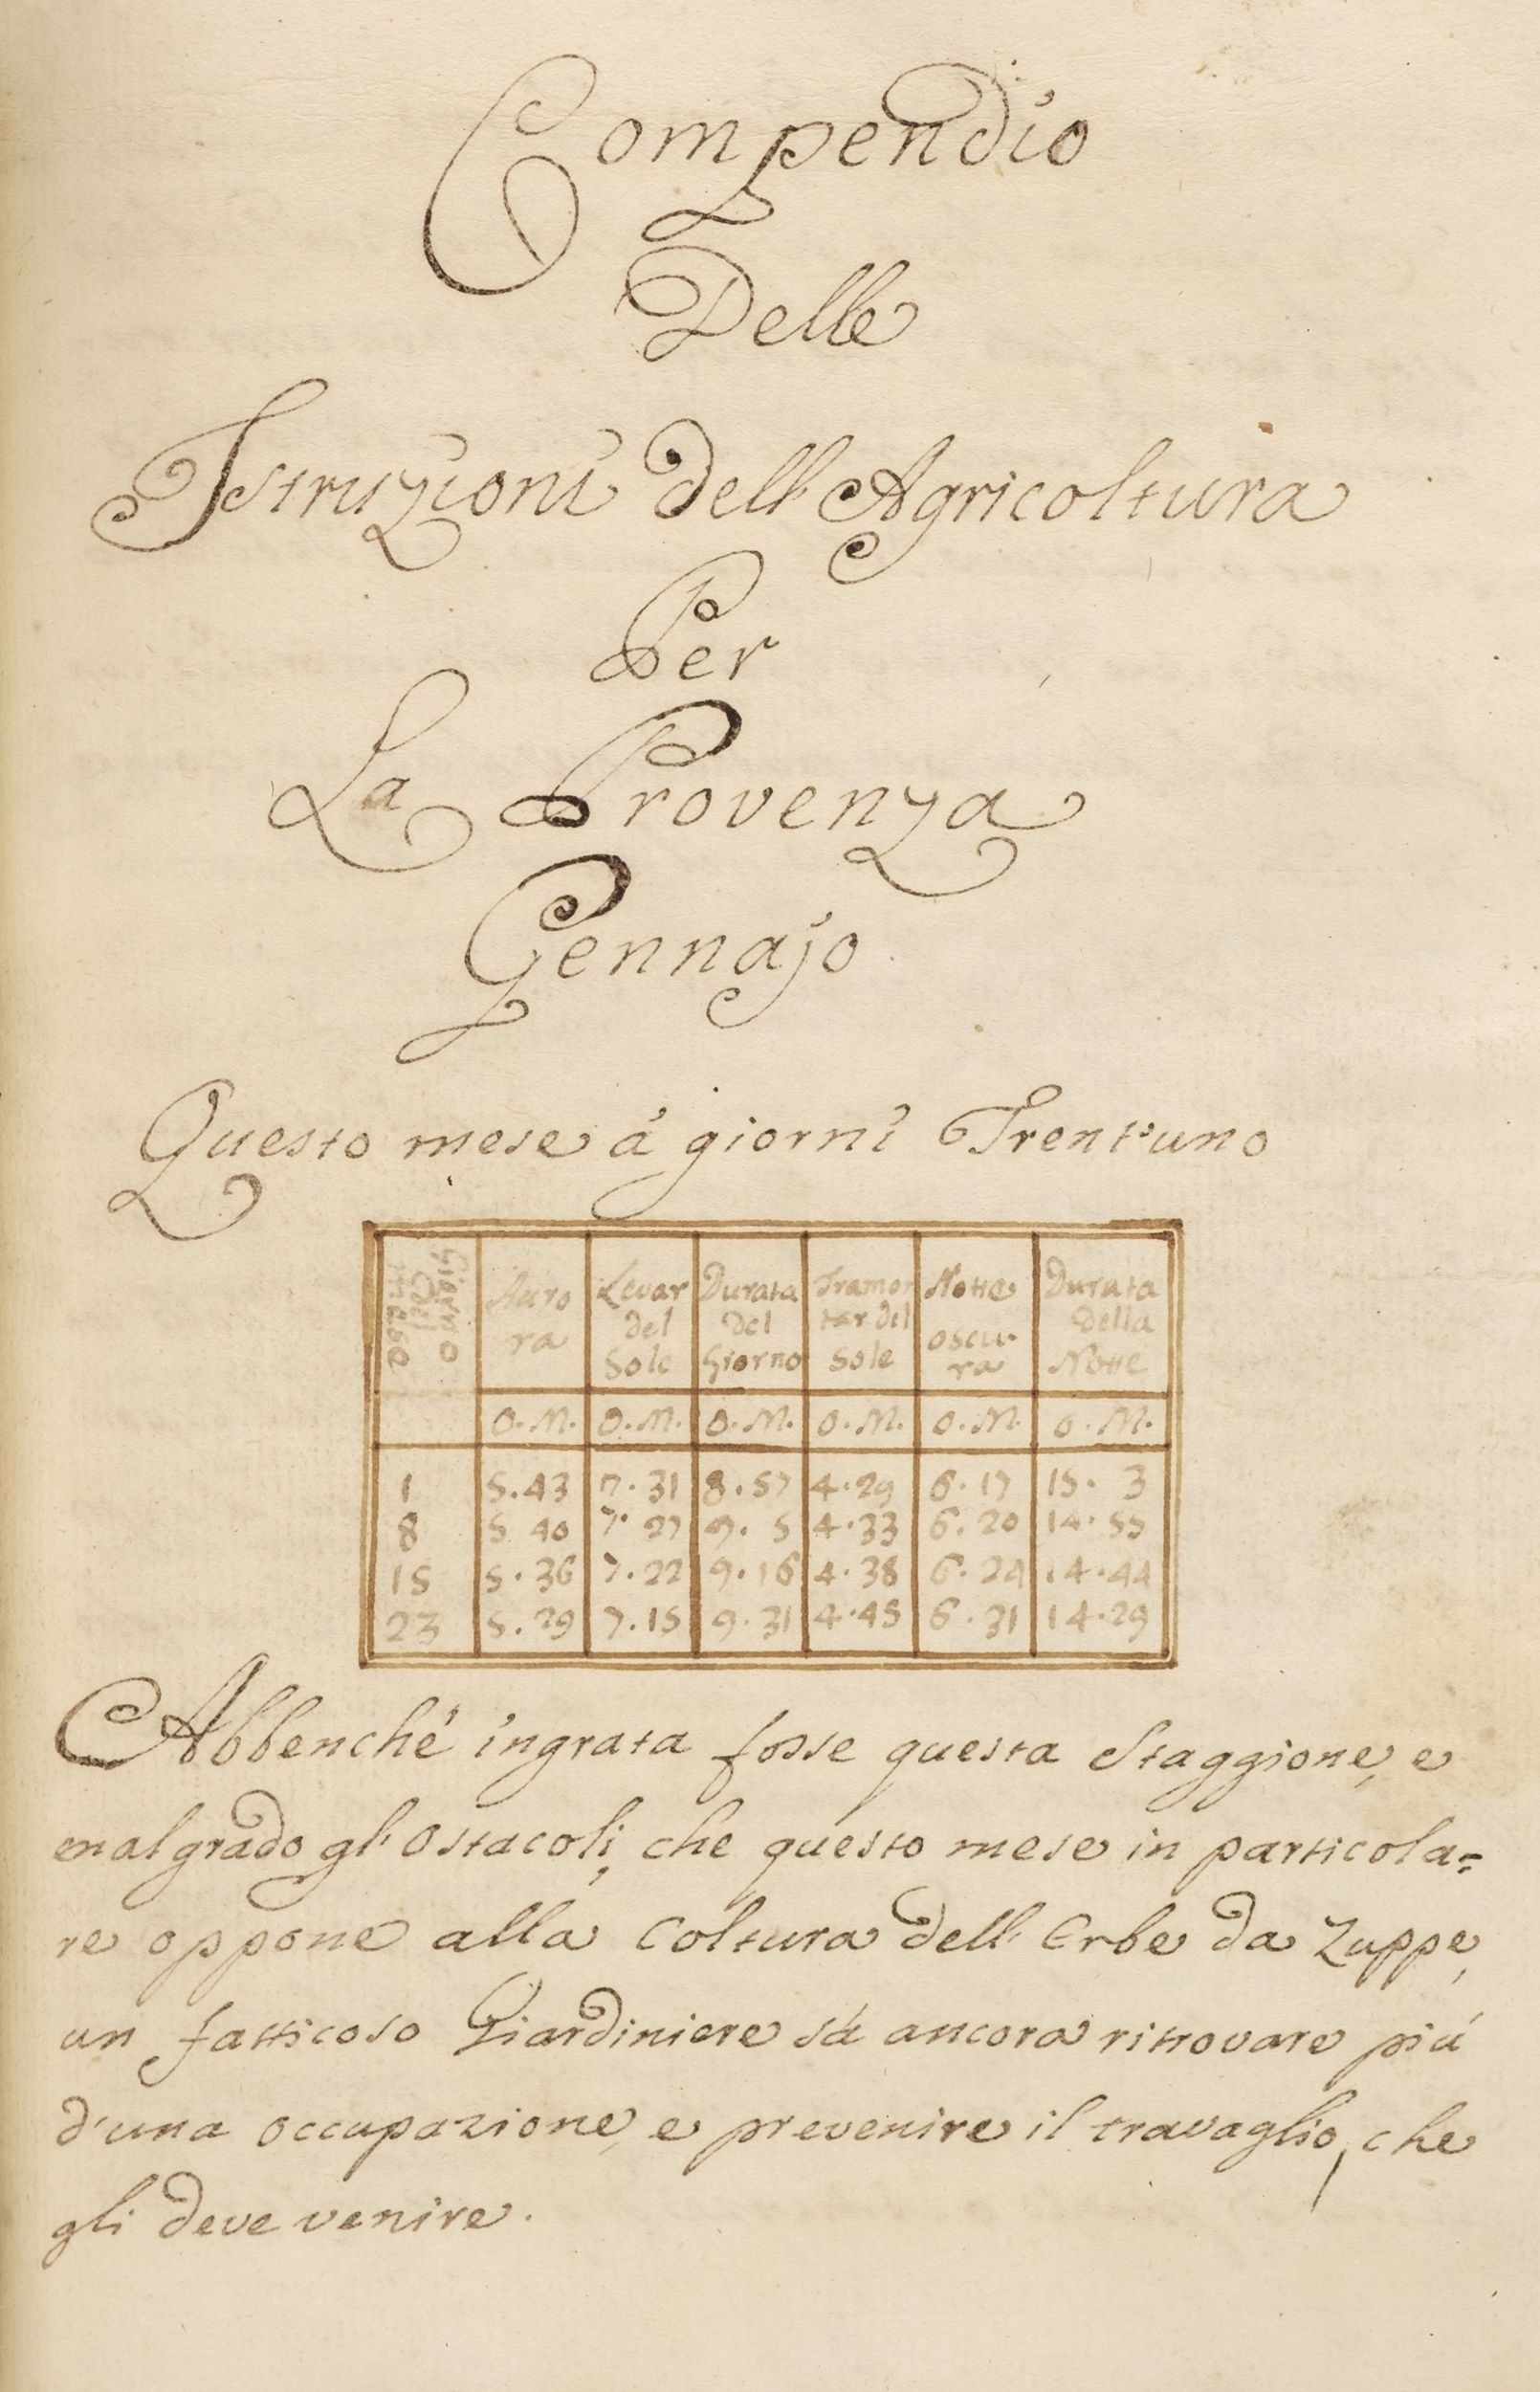 Compendio
Delle
Istruzioni dell'Agricoltura
Per
La Provenza
Gennajo
Questo mese à giorni Trent'uno
Giorno del mese | Auro ra | Levar del Sole | Durata del Giorno | Tramon ter del Sole | Notte oscu- ra | Durata della Notte
O. M. | O. M. | O. M. | O. M. | O. M. | O. M.
1 | 5.43 | 7.31 | 8.57 | 4.29 | 6.17 | 15. 3
8 | 5 40 | 7. 27 | 9. 5 | 4.33 | 6.20 | 14.55
15 | 5.36 | 7.22 | 9.16 | 4.38 | 6.24 | 14.44
23 | 5.29 | 7.15 | 9.31 | 4.45 | 6.31 | 14.29
Abbenché ingrata fosse questa Staggione, e
malgrado gl'Ostacoli, che questo mese in particola=
re oppone alla Coltura dell'Erbe da Zuppe,
un fatticoso Giardiniere sà ancora ritrovare più
d'una occupazione, e prevenire il travaglio, che
gli deve venire.